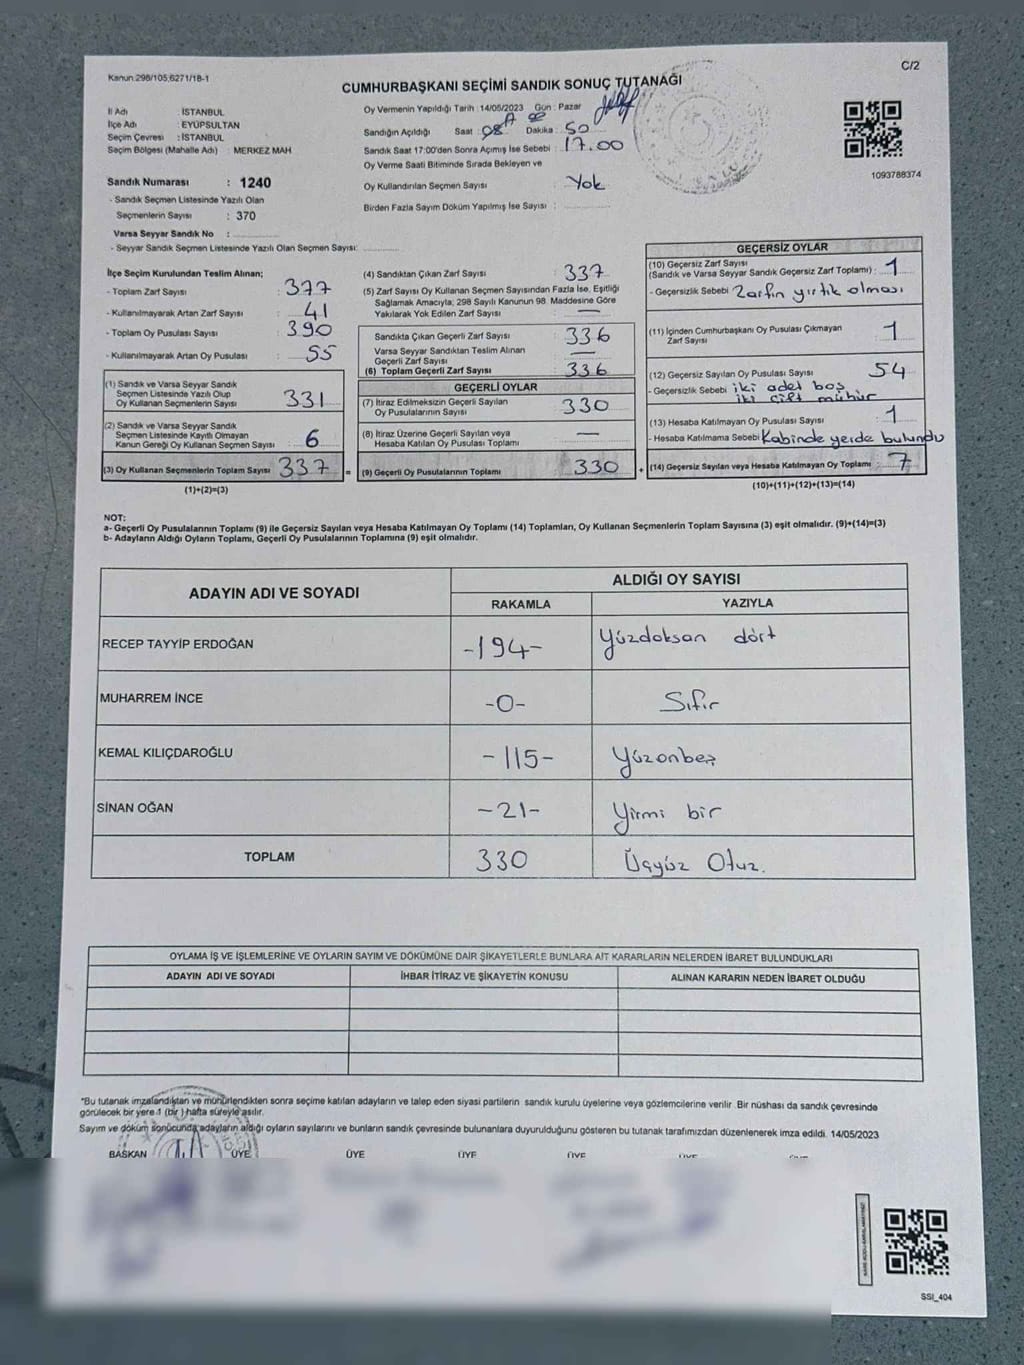 Kanun 298/105,6271/18-1
C/2
CUMHURBAŞKANI SEÇİMİ SANDIK SONUÇ TUTANAĞI
İl Adı : İSTANBUL
İlçe Adı : EYÜPSULTAN
Seçim Çevresi : İSTANBUL
Seçim Bölgesi (Mahalle Adı) : MERKEZ MAH
Oy Vermenin Yapıldığı Tarih : 14/05/2023 Gün : Pazar
Sandığın Açıldığı Saat : 08 Dakika : 50
Sandık Saat 17:00'den Sonra Açılmış İse Sebebi : 17.00
Oy Verme Saati Bitiminde Sırada Bekleyen ve
Oy Kullandırılan Seçmen Sayısı : Yok
Birden Fazla Sayım Döküm Yapılmış İse Sayısı :
1093788374
Sandık Numarası : 1240
- Sandık Seçmen Listesinde Yazılı Olan
Seçmenlerin Sayısı : 370
Varsa Seyyar Sandık No :
- Seyyar Sandık Seçmen Listesinde Yazılı Olan Seçmen Sayısı:
İlçe Seçim Kurulundan Teslim Alınan;
- Toplam Zarf Sayısı : 377
- Kullanılmayarak Artan Zarf Sayısı : 41
- Toplam Oy Pusulası Sayısı : 390
- Kullanılmayarak Artan Oy Pusulası : 55
(1) Sandık ve Varsa Seyyar Sandık
Seçmen Listesinde Yazılı Olup
Oy Kullanan Seçmenlerin Sayısı : 331
(2) Sandık ve Varsa Seyyar Sandık
Seçmen Listesinde Kayıtlı Olmayan
Kanun Gereği Oy Kullanan Seçmen Sayısı : 6
(3) Oy Kullanan Seçmenlerin Toplam Sayısı : 337 =
(1)+(2)=(3)
(4) Sandıktan Çıkan Zarf Sayısı : 337
(5) Zarf Sayısı Oy Kullanan Seçmen Sayısından Fazla İse, Eşitliği
Sağlamak Amacıyla; 298 Sayılı Kanunun 98. Maddesine Göre
Yakılarak Yok Edilen Zarf Sayısı : —
Sandıkta Çıkan Geçerli Zarf Sayısı : 336
Varsa Seyyar Sandıktan Teslim Alınan
Geçerli Zarf Sayısı : —
(6) Toplam Geçerli Zarf Sayısı : 336
GEÇERLİ OYLAR
(7) İtiraz Edilmeksizin Geçerli Sayılan
Oy Pusulalarının Sayısı : 330
(8) İtiraz Üzerine Geçerli Sayılan veya
Hesaba Katılan Oy Pusulası Toplamı : —
(9) Geçerli Oy Pusulalarının Toplamı : 330 +
GEÇERSİZ OYLAR
(10) Geçersiz Zarf Sayısı
(Sandık ve Varsa Seyyar Sandık Geçersiz Zarf Toplamı) : 1
- Geçersizlik Sebebi : Zarfın yırtık olması
(11) İçinden Cumhurbaşkanı Oy Pusulası Çıkmayan
Zarf Sayısı : 1
(12) Geçersiz Sayılan Oy Pusulası Sayısı : 54
- Geçersizlik Sebebi : iki adet boş
iki çift mühür
(13) Hesaba Katılmayan Oy Pusulası Sayısı : 1
- Hesaba Katılmama Sebebi : Kabinde yerde bulundu
(14) Geçersiz Sayılan veya Hesaba Katılmayan Oy Toplamı : 7
(10)+(11)+(12)+(13)=(14)
NOT:
a- Geçerli Oy Pusulalarının Toplamı (9) ile Geçersiz Sayılan veya Hesaba Katılmayan Oy Toplamı (14) Toplamları, Oy Kullanan Seçmenlerin Toplam Sayısına (3) eşit olmalıdır. (9)+(14)=(3)
b- Adayların Aldığı Oyların Toplamı, Geçerli Oy Pusulalarının Toplamına (9) eşit olmalıdır.
ADAYIN ADI VE SOYADI
ALDIĞI OY SAYISI
RAKAMLA YAZIYLA
RECEP TAYYİP ERDOĞAN -194- Yüzdoksan dört
MUHARREM İNCE -0- Sıfır
KEMAL KILIÇDAROĞLU -115- Yüzonbeş
SİNAN OĞAN -21- Yirmi bir
TOPLAM 330 Üçyüz Otuz.
OYLAMA İŞ VE İŞLEMLERİNE VE OYLARIN SAYIM VE DÖKÜMÜNE DAİR ŞİKAYETLERLE BUNLARA AİT KARARLARIN NELERDEN İBARET BULUNDUKLARI
ADAYIN ADI VE SOYADI İHBAR İTİRAZ VE ŞİKAYETİN KONUSU ALINAN KARARIN NEDEN İBARET OLDUĞU
*Bu tutanak imzalandıktan ve mühürlendikten sonra seçime katılan adayların ve talep eden siyasi partilerin sandık kurulu üyelerine veya gözlemcilerine verilir. Bir nüshası da sandık çevresinde
görülecek bir yere 1 (bir ) hafta süreyle asılır.
Sayım ve döküm sonucunda adayların aldığı oyların sayılarını ve bunların sandık çevresinde bulunanlara duyurulduğunu gösteren bu tutanak tarafımızdan düzenlenerek imza edildi. 14/05/2023
BAŞKAN ÜYE ÜYE ÜYE ÜYE ÜYE
SSI_404